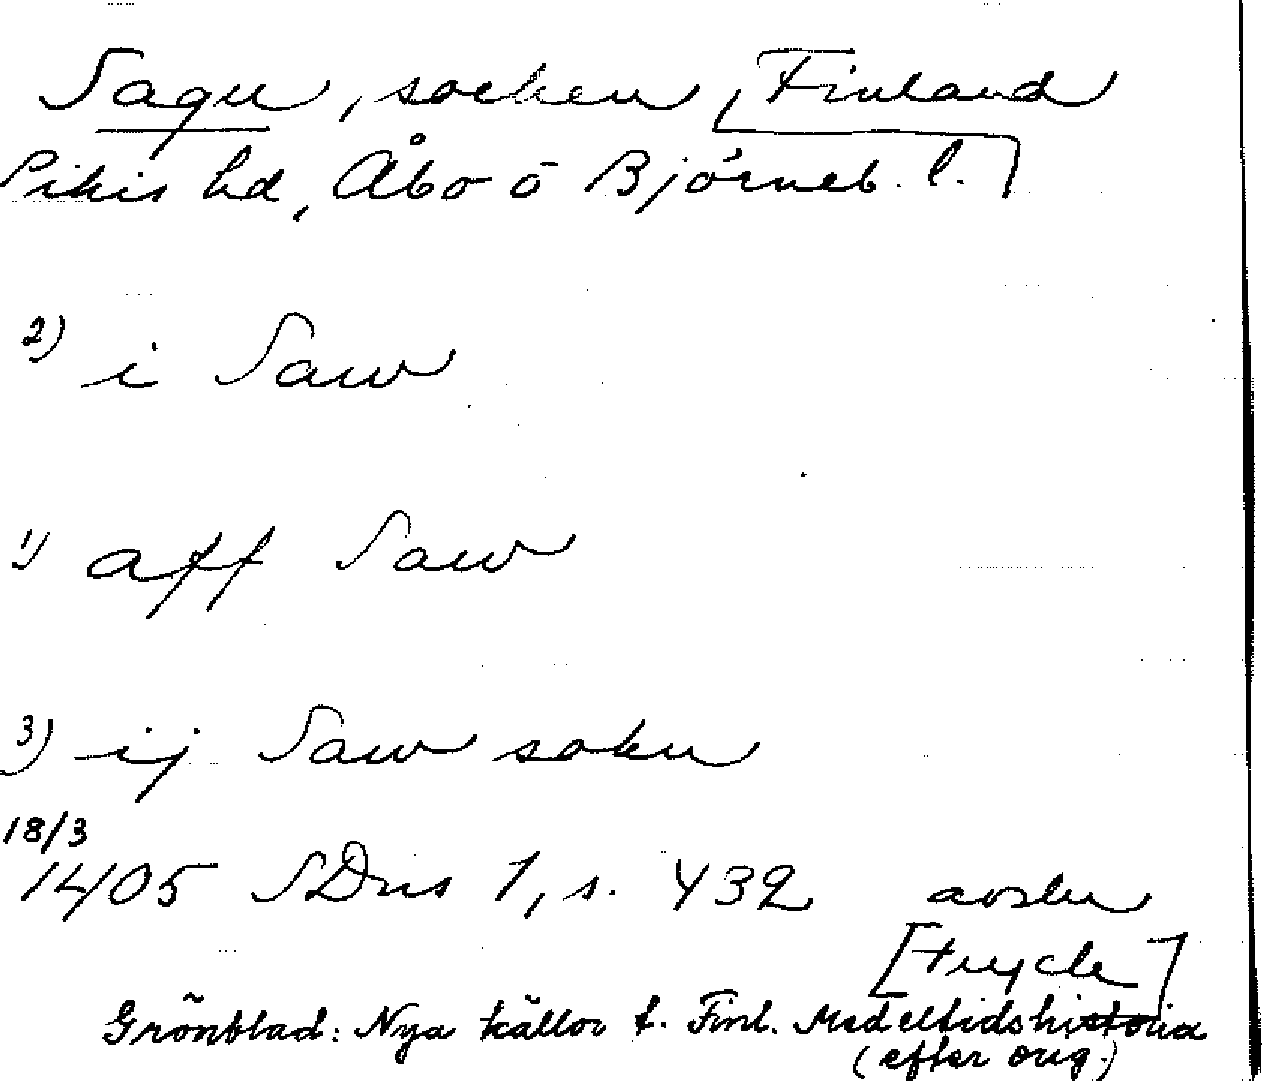 Sagu, socken, [Finland
Pikis hd, Åbo o Björneb. l.]
2) i Saw
1) aff Saw
3) ij Saw sokn
18/3
1405 SDns 1, s. 432 avskr
[tryck]
Grönblad: Nya källor t. Finl. Medeltidshistoria
(efter orig.)